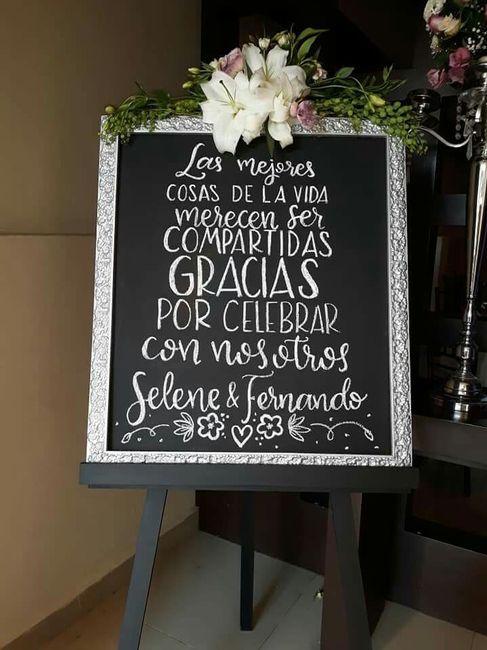 Las mejores
COSAS DE LA VIDA
merecen ser
COMPARTIDAS
GRACIAS
POR CELEBRAR
con nosotros
Selene & Fernando